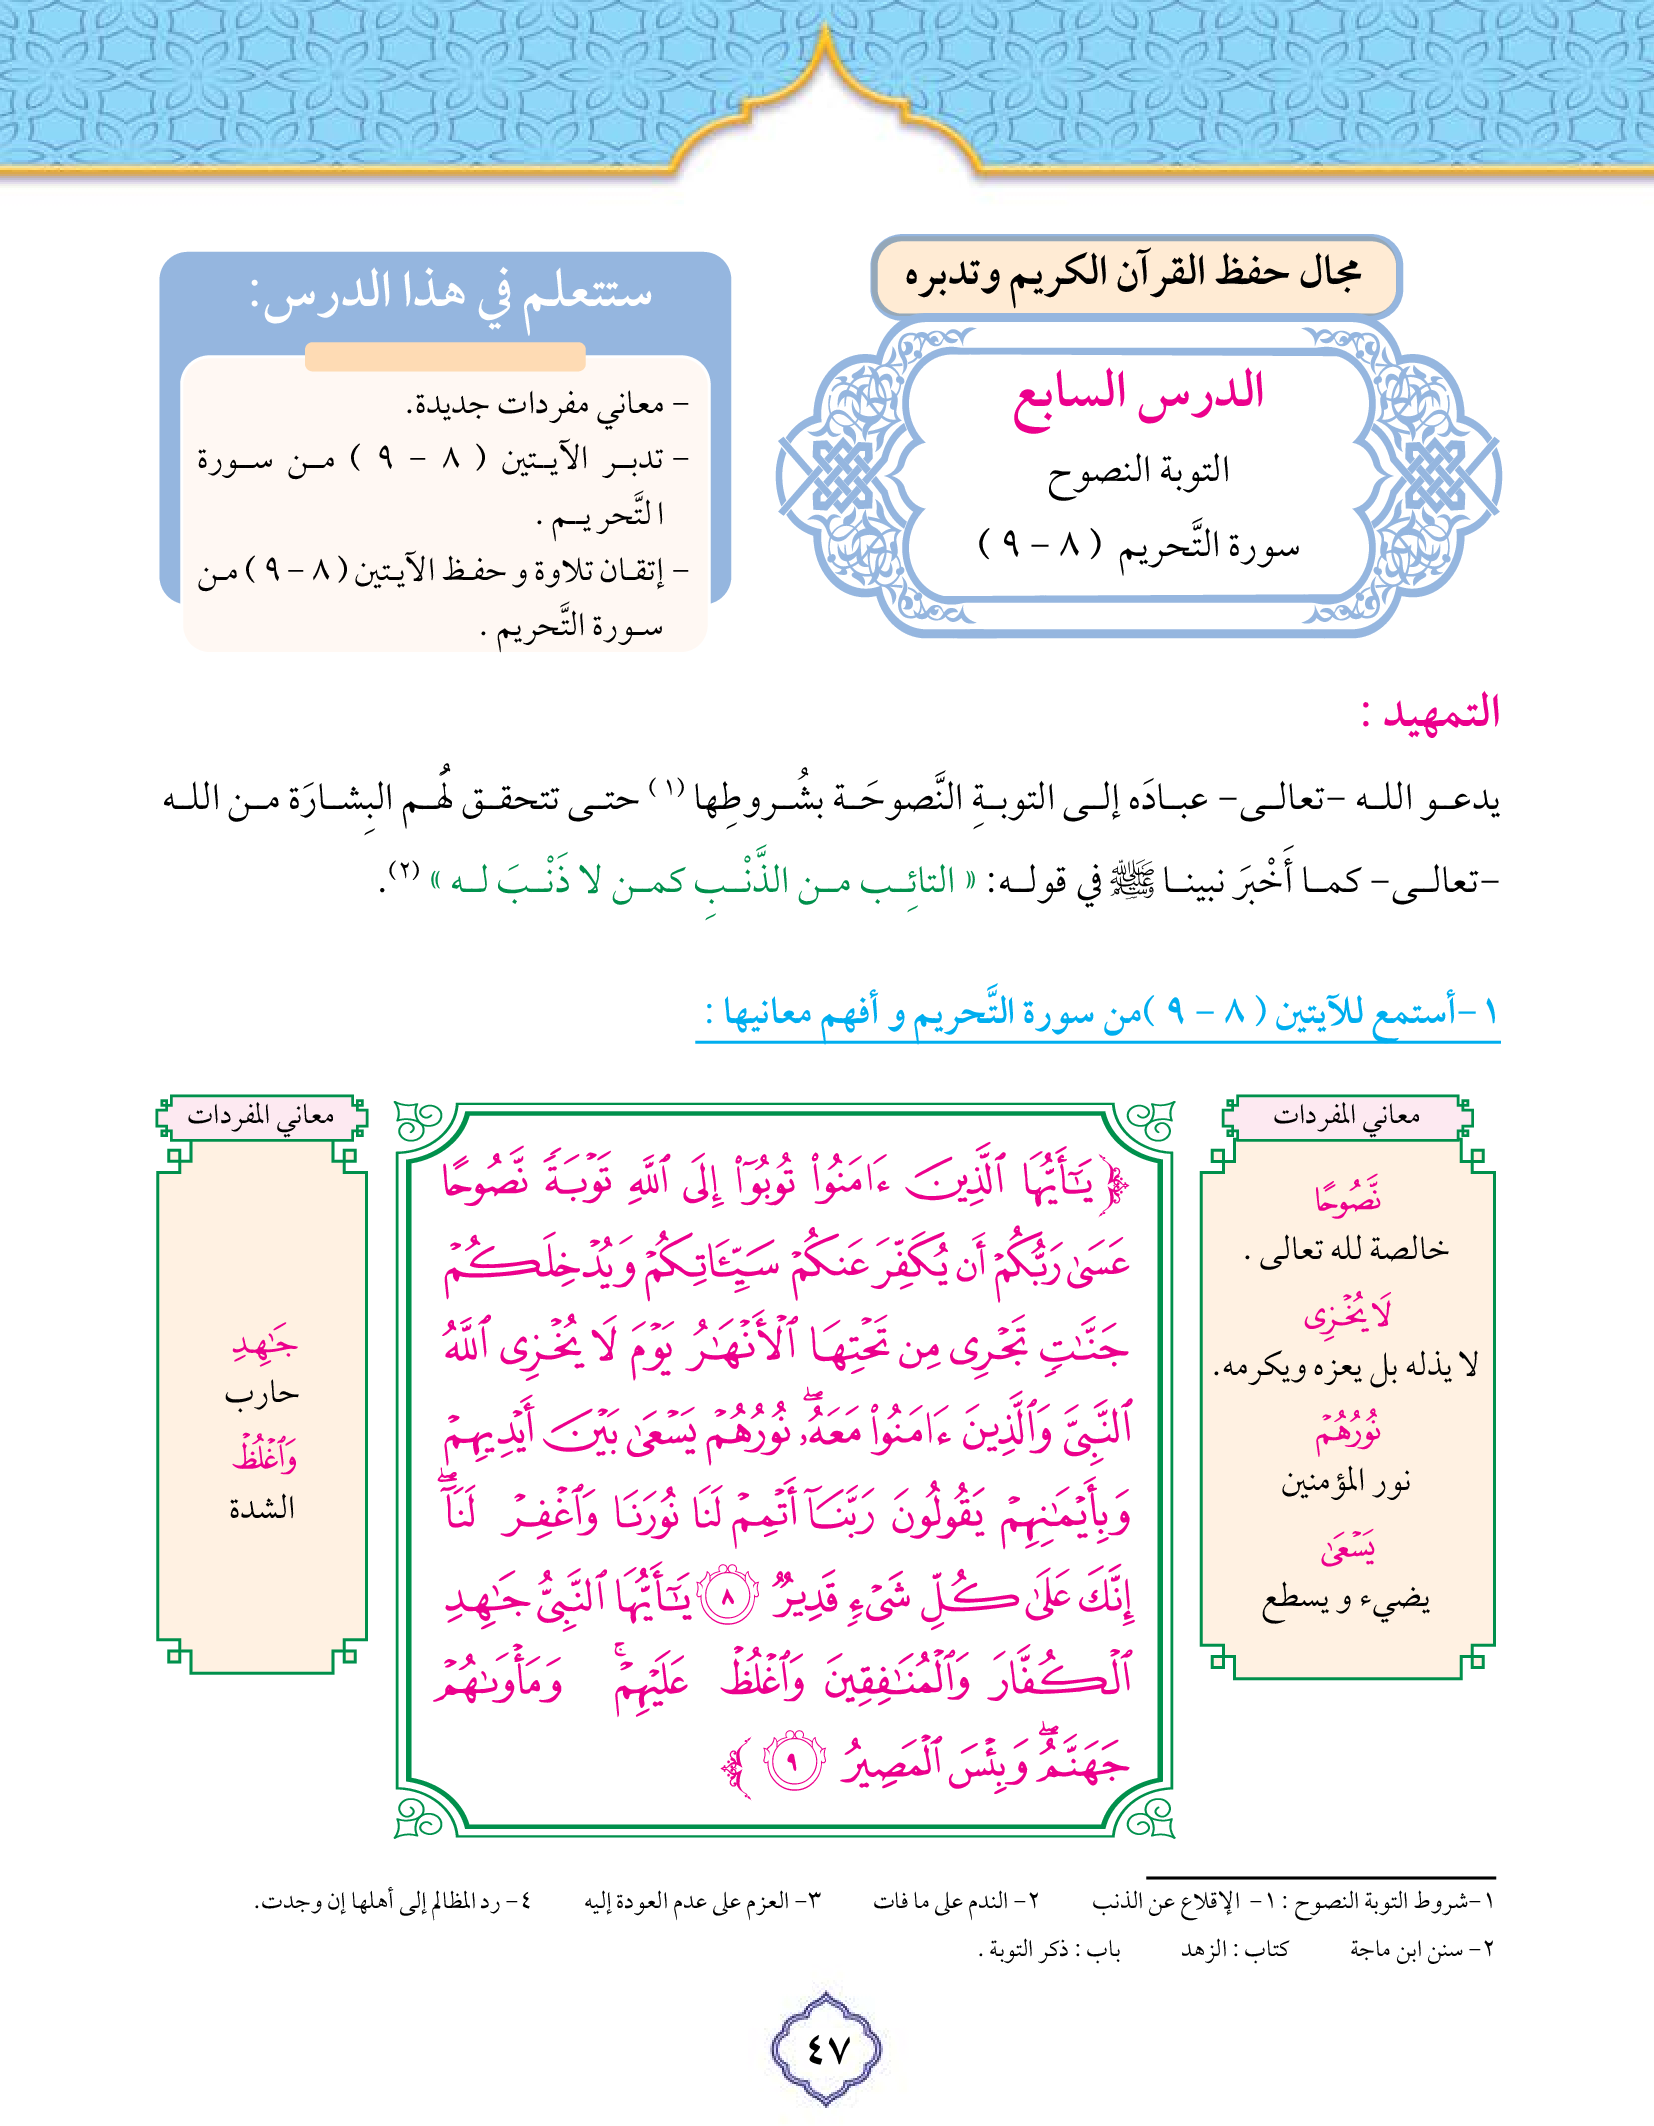 مجال حفظ القرآن الكريم وتدبره
الدرس السابع
التوبة النصوح
سورة التَّحريم ( ٨ – ٩ )
ستتعلم في هذا الدرس:
– معاني مفردات جديدة.
– تدبر الآيتين ( ٨ – ٩ ) من سورة
التَّحريم .
– إتقان تلاوة و حفظ الآيتين ( ٨ – ٩ ) من
سورة التَّحريم .
التمهيد :
يدعو الله –تعالى– عبادَه إلى التوبةِ النَّصوحَة بشُروطِها (١) حتى تتحقق لهُم البِشارَة من الله
–تعالى– كما أَخْبرَ نبينا ﷺ في قوله: « التائِب من الذَّنْبِ كمن لا ذَنْبَ له » (٢).
١–أستمع للآيتين ( ٨ – ٩ )من سورة التَّحريم و أفهم معانيها :
معاني المفردات
نَّصُوحًا
خالصة لله تعالى .
لَا يُخْزِى
لا يذله بل يعزه ويكرمه.
نُورُهُمْ
نور المؤمنين
يَسْعَىٰ
يضيء و يسطع
﴿ يَٰٓأَيُّهَا ٱلَّذِينَ ءَامَنُواْ تُوبُوٓاْ إِلَى ٱللَّهِ تَوْبَةً نَّصُوحًا
عَسَىٰ رَبُّكُمْ أَن يُكَفِّرَ عَنكُمْ سَيِّـَٔاتِكُمْ وَيُدْخِلَكُمْ
جَنَّٰتٍ تَجْرِى مِن تَحْتِهَا ٱلْأَنْهَٰرُ يَوْمَ لَا يُخْزِى ٱللَّهُ
ٱلنَّبِىَّ وَٱلَّذِينَ ءَامَنُواْ مَعَهُۥۖ نُورُهُمْ يَسْعَىٰ بَيْنَ أَيْدِيهِمْ
وَبِأَيْمَٰنِهِمْ يَقُولُونَ رَبَّنَآ أَتْمِمْ لَنَا نُورَنَا وَٱغْفِرْ لَنَآۖ
إِنَّكَ عَلَىٰ كُلِّ شَىْءٍ قَدِيرٌ ٨ يَٰٓأَيُّهَا ٱلنَّبِىُّ جَٰهِدِ
ٱلْكُفَّارَ وَٱلْمُنَٰفِقِينَ وَٱغْلُظْ عَلَيْهِمْۚ وَمَأْوَىٰهُمْ
جَهَنَّمُۖ وَبِئْسَ ٱلْمَصِيرُ ٩ ﴾
معاني المفردات
جَٰهِدِ
حارب
وَٱغْلُظْ
الشدة
١–شروط التوبة النصوح : ١– الإقلاع عن الذنب ٢– الندم على ما فات ٣– العزم على عدم العودة إليه ٤– رد المظالم إلى أهلها إن وجدت.
٢– سنن ابن ماجة كتاب : الزهد باب : ذكر التوبة .
٤٧